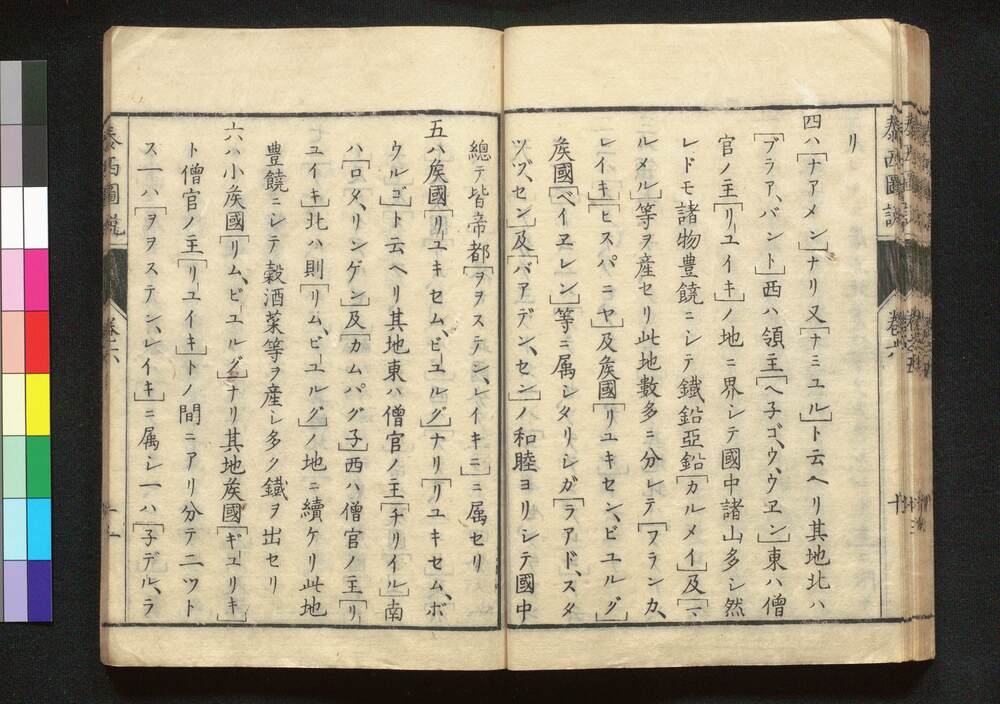 泰西圖説
卷六
十
リ
四ハ[ナアメン]ナリ又[ナミユル]ト云ヘリ其地北ハ
[ブラア、バント]西ハ領主[ヘ子ゴ、ウ、ウヱン]東ハ僧
官ノ主[リユイキ]ノ地ニ界シテ國中諸山多シ然
レドモ諸物豊饒ニシテ鐵鉛亞鉛[カルメイ]及[マ、
ルメル]等ヲ産セリ此地數多ニ分レテ[フランカ、
レイキ][ヒスパニヤ]及矦國[リユキセン、ビユルグ]
矦國[ベイヱレン]等ニ属シタリシガ[ラアド、スタ
ツヅ、セン]及[バアデン、セン]ノ和睦ヨリシテ國中
總テ皆帝都[ヲヲステン、レイキニ]ニ属セリ
五ハ矦國[リユキセム、ビユルグ]ナリ[リユキセム、ボ
ウルゴ]ト云ヘリ其地東ハ僧官ノ主[チリイル]南
ハ[ロタ、リンゲン]及[カムパグ子]西ハ僧官ノ主[リ
ユイキ]北ハ則[リム、ビユルグ]ノ地ニ續ケリ此地
豊饒ニシテ穀酒菜等ヲ産シ多ク鐵ヲ出セリ
六ハ小矦國[リム、ビユルグ]ナリ其地矦國[ギユリキ]
ト僧官ノ主[リユイキ]トノ間ニアリ分テ二ツト
ス一ハ[ヲヲステン、レイキ]ニ属シ一ハ[子デル、ラ
泰西圖説
卷六
十一